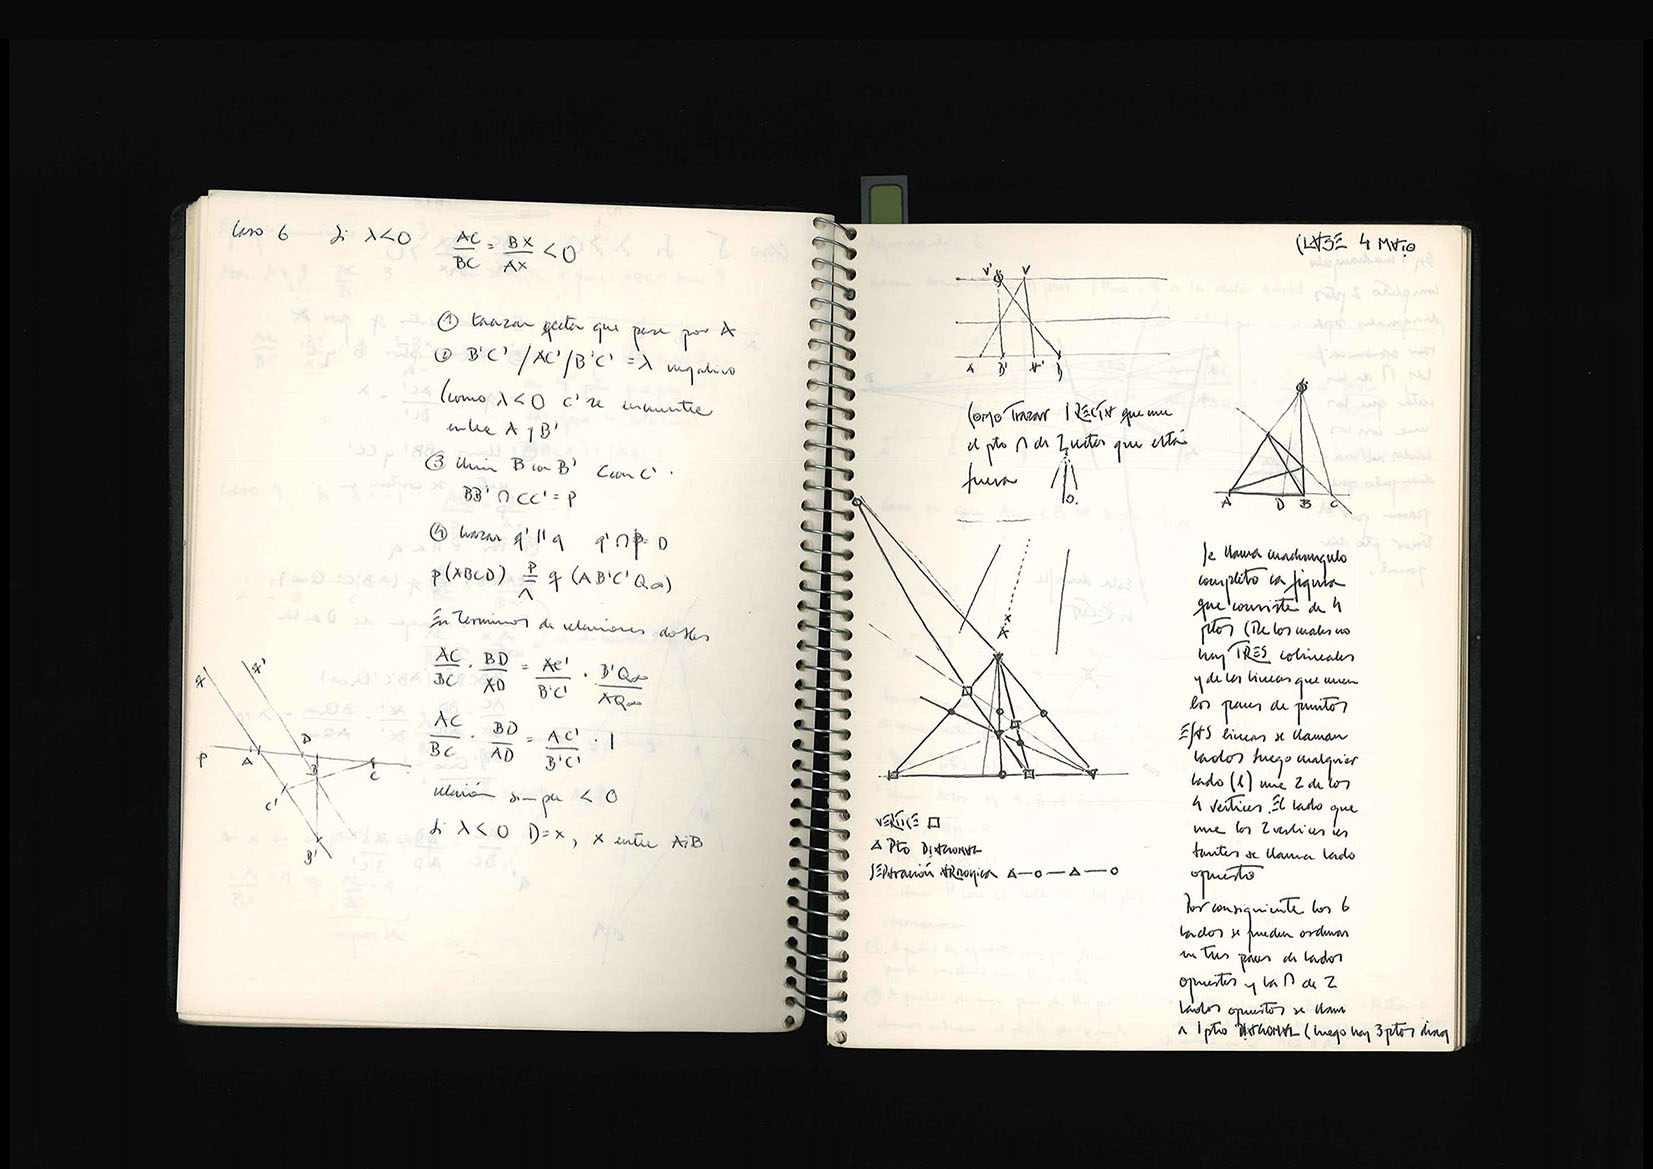 Caso 6 Si λ<0 AC/BC = BX/AX < 0
① trazar recta que pase por A
② B'C' / AC' / B'C' = λ negativo
(como λ<0 C' se encuentre
entre A y B'
③ Unir B con B' C con C'
BB' ∩ CC' = P
④ trazar q' || q q' ∩ p = D
p(ABCD) P/⊼ q (AB'C'Q∞)
En Terminos de relaciones dobles
AC/BC · BD/AD = AC'/B'C' · B'Q∞/AQ∞
AC/BC · BD/AD = AC'/B'C' · 1
relación simple < 0
Si λ<0 D=x, x entre A y B
q q'
p A D B C
C'
B'
CLASE 4 MAYO
V' V
A B' A' B
Como Trazar 1 RECTA que une
el pto ∩ de 2 rectas que están
fuera
O
A D B C
Se llama cuadrangulo
completo la figura
que consiste de 4
ptos (De los cuales no
hay TRES colineales
y de las lineas que unen
los pares de puntos
ESAS lineas se llaman
lados luego cualquier
lado (l) une 2 de los
4 vertices. El lado que
une los 2 vertices res
tantes se llama lado
opuesto
Por consiguiente los 6
lados se pueden ordenar
en tres pares de lados
opuestos y la ∩ de 2
lados opuestos se llama
a 1 pto DIAGONAL (luego hay 3 ptos diag
VERTICE □
△ Pto DIAGONAL
SEPARACIÓN ARMONICA △—O—△—O